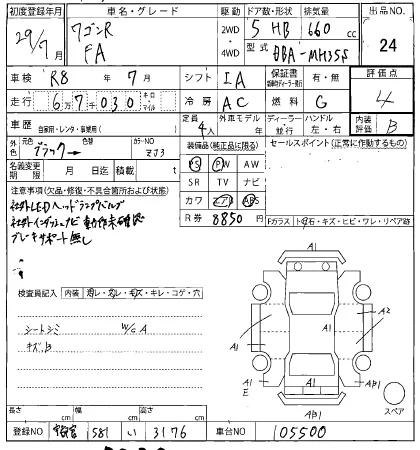 初度登録年月 車名・グレード 駆動 ドア数・形状 排気量 出品NO
29/7月 ワゴンR FA 2WD 4WD 5 HB 660 cc 24
型式 DBA-MH35S
車検 R8 年 7 月 シフト IA 保証書 有・無 評価点
走行 6万7千030 キロ・マイル 冷房 AC 燃料 G 4
車歴 自家用・レンタ・事業用( ) 定員 4人 外車モデル 年 ディーラー・並行 ハンドル 左・右 内装評価 B
外色 元色 ブラック 色替 カラーNO ZJ3 装備品(純正品に限る) セールスポイント(正常に作動するもの)
名義変更期限 月 日迄 積載 t PS PW AW
SR TV ナビ
注意事項(欠品・修復・不具合箇所および状態) カワ エアB ABS
社外LEDヘッドランプバルブ R券 8850 円
社外インダッシュナビ 動作未確認
ブレーキサポート無し Fガラス トビ石・キズ・ヒビ・ワレ・リペア跡
検査員記入 内装 ヨゴレ・スレ・キズ・キレ・コゲ・穴
シートシミ W/C A
キズ B
A1
A1 A2
A1 A1
A1 E AB1
AB1 スペア
長さ cm 幅 cm 高さ cm
登録NO 581 い 3176 車台NO 105500